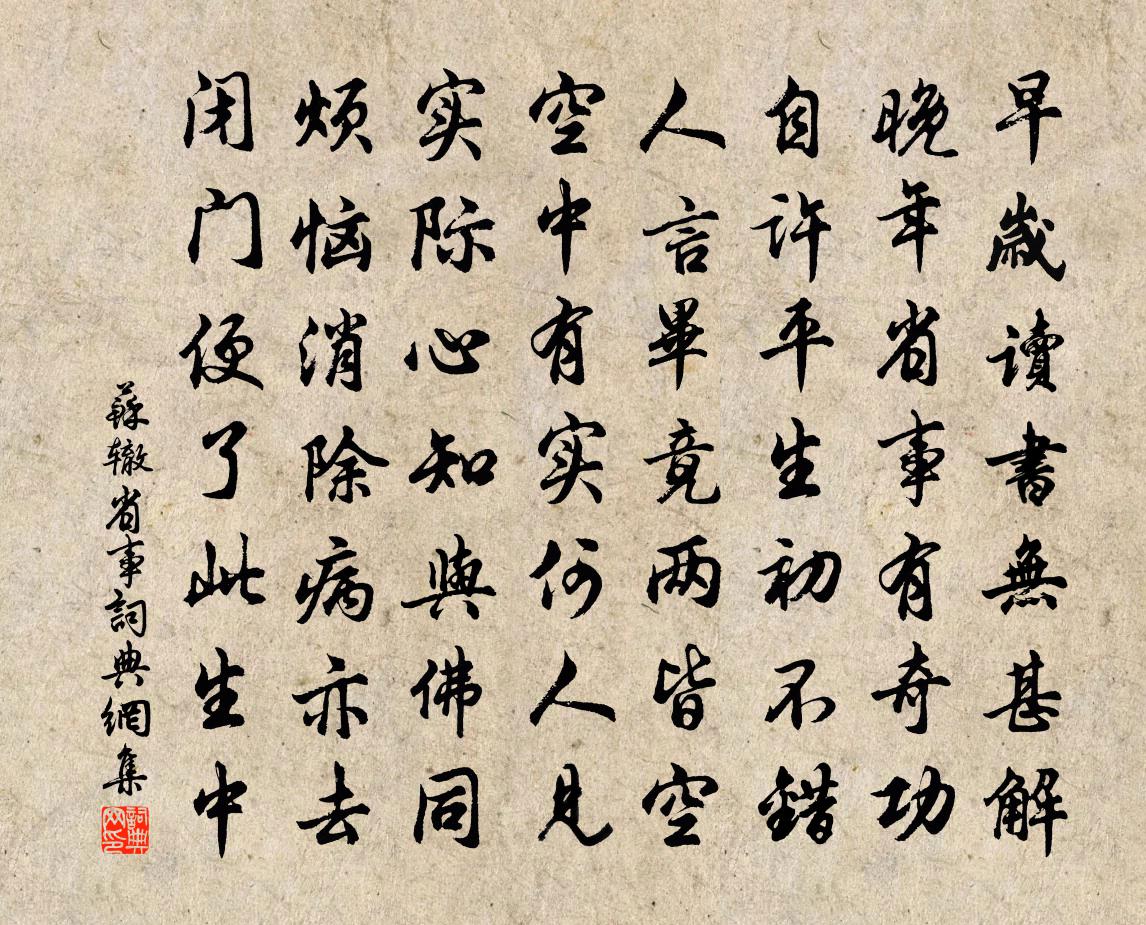 早歲讀書無甚解
晚年省事有奇功
自许平生初不錯
人言畢竟两皆空
空中有实何人見
实际心知與佛同
烦恼消除病亦去
闭门便了此生中
蘇辙省事詞典網集
詞典网印